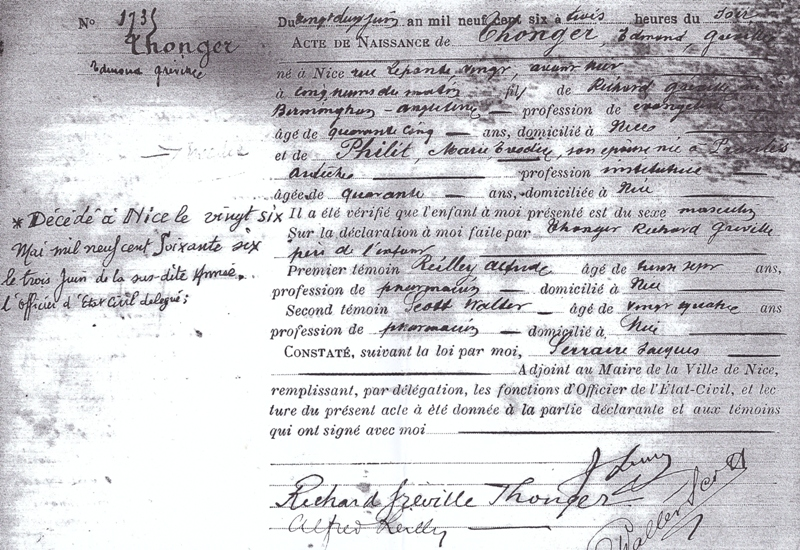 N° 1735
Thonger
Edmond Gréville
* Décédé à Nice le vingt six
Mai mil neuf cent Soixante six
le trois Juin de la sus-dite Année.
l'Officier d'Etat Civil délégué:
Du vingt deux Juin an mil neuf cent six à trois heures du soir
ACTE DE NAISSANCE de Thonger, Edmond, Gréville
né à Nice rue Lépante vingt, avant hier
à cinq heures du matin fils de Richard Gréville
Birmingham - angleterre profession de
âgé de quarante cinq ans, domicilié à Nice
et de Philit, Marie son épouse née à
ardèche profession institutrice
âgée de quarante ans, domiciliée à Nice
Il a été vérifié que l'enfant à moi présenté est du sexe masculin
Sur la déclaration à moi faite par Thonger Richard Gréville
père de l'enfant
Premier témoin Reilley Alfred âgé de trente sept ans,
profession de pharmacien domicilié à Nice
Second témoin Scott Walter âgé de vingt quatre ans
profession de pharmacien domicilié à Nice
CONSTATÉ, suivant la loi par moi, Jacques
Adjoint au Maire de la Ville de Nice,
remplissant, par délégation, les fonctions d'Officier de l'État-Civil, et lec
ture du présent acte à été donnée à la partie déclarante et aux témoins
qui ont signé avec moi
Richard Gréville Thonger
Alfred Reilly
Walter Scott